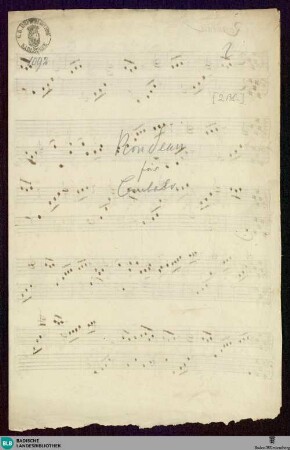 1092
[2 Bl.]
Rondeau
für
Cembalo
BLB
BADISCHE
LANDESBIBLIOTHEK
Baden-Württemberg